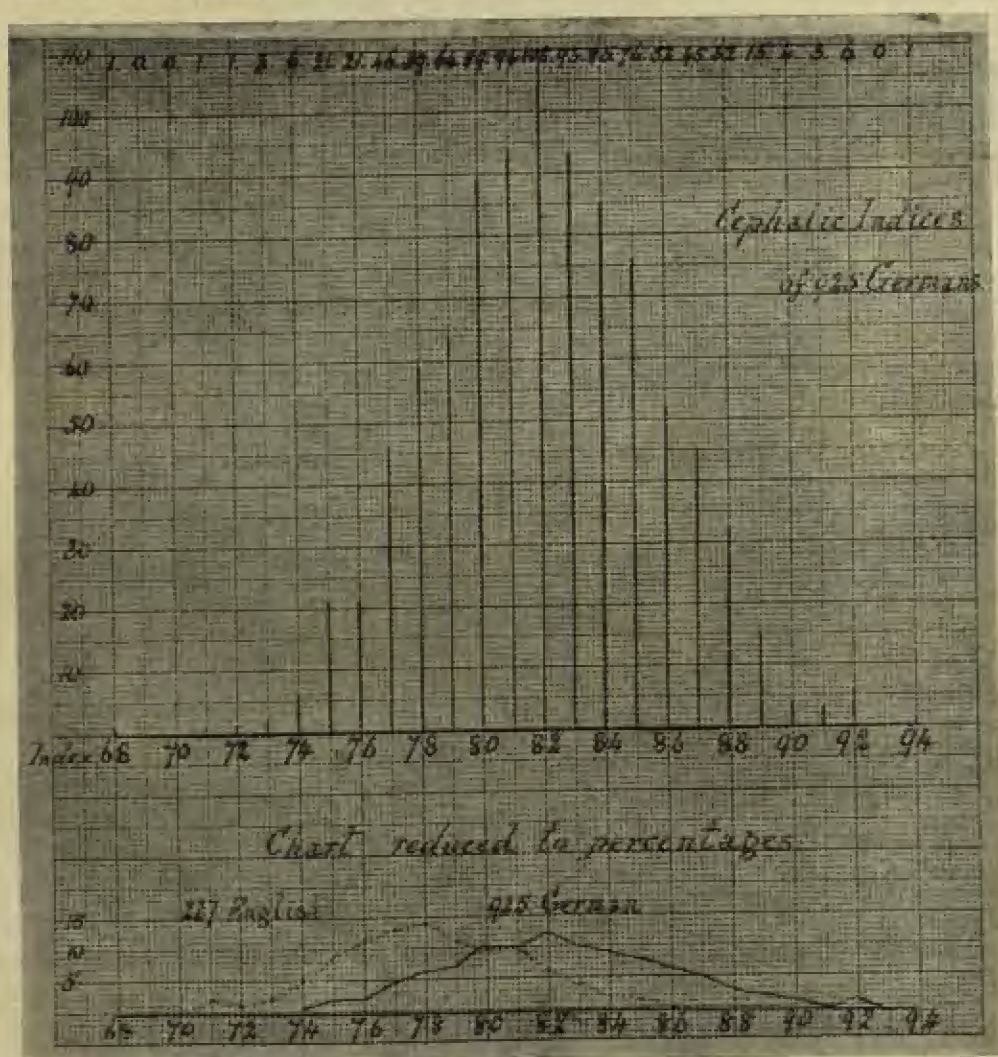 110 1 0 0 1 1 2 6 21 21 46 59 64 89 94 108 93 85 76 52 45 32 15 4 3 6 0 1
100
90
80
Cephalic Indices
of 925 Germans
70
60
50
40
30
20
10
Index 68 70 72 74 76 78 80 82 84 86 88 90 92 94
Chart reduced to percentages
227 English 925 German
15
10
5
68 70 72 74 76 78 80 82 84 86 88 90 92 94